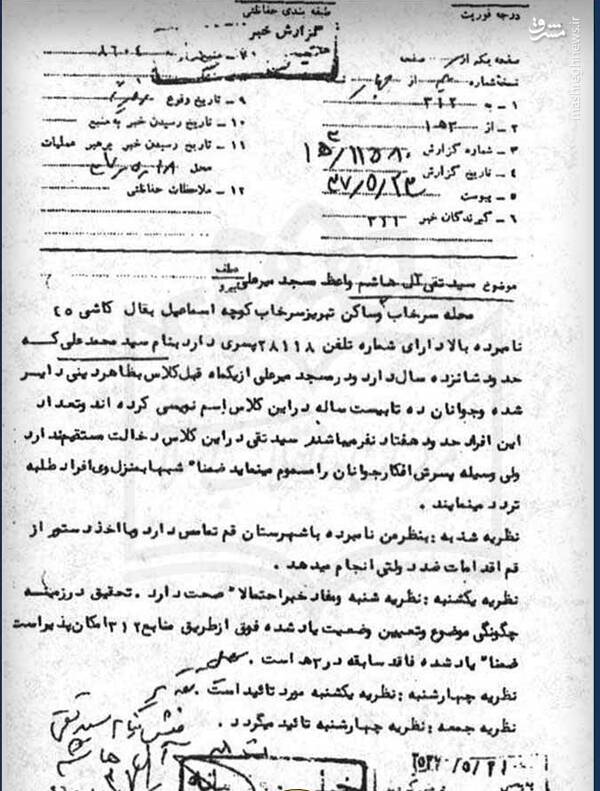 طبقه بندی حفاظتی
درجه فوریت
گزارش خبر
مشرق
mashreghnews.ir
صفحه یکم از صفحه
نسخه شماره از نسخه
۱ - به ۳۱۲
۲ - از ۳ه۱
۳ - شماره گزارش ۱۱۵۸۰/۳ه۱
۴ - تاریخ گزارش ۳۷/۵/۲۳
۵ - پیوست
۶ - گیرندگان خبر ۳۲۱
۷ - منبع ۸۶۰۴
۹ - تاریخ وقوع
۱۰ - تاریخ رسیدن خبر به منبع
۱۱ - تاریخ رسیدن خبر برهبر عملیات
محل ۳۷/۵/۱۸
۱۲ - ملاحظات حفاظتی
موضوع سید تقی آل هاشم واعظ مسجد میرعلی
عطف
پیرو
محله سرخاب وساکن تبریز سرخاب کوچه اسماعیل بقال کاشی ۲۵
نامبرده بالا دارای شماره تلفن ۲۸۱۱۸ پسری دارد بنام سید محمدعلی که
حدود شانزده سال دارد ودر مسجد میرعلی از یکماه قبل کلاس بظاهر دینی دایر
شده وجوانان ده تا بیست ساله در این کلاس اسم نویسی کرده اند وتعداد
این افراد حدود هفتاد نفر میباشد سید تقی در این کلاس دخالت مستقیم ندارد
ولی وسیله پسرش افکار جوانان را مسموم مینماید ضمنا" شبها بمنزل وی افراد طلبه
تردد مینمایند .
نظریه شنبه : بنظر من نامبرده با شهرستان قم تماس دارد وبا اخذ دستور از
قم اقدامات ضد دولتی انجام میدهد .
نظریه یکشنبه : نظریه شنبه ومفاد خبر احتمالا" صحت دارد . تحقیق در زمینه
چگونگی موضوع وتعیین وضعیت یاد شده فوق از طریق منابع ۳۱۲ امکان پذیر است
ضمنا" یاد شده فاقد سابقه در ۳ه۱ است .
نظریه چهارشنبه : نظریه یکشنبه مورد تائید است .
نظریه جمعه : نظریه چهارشنبه تائید میگردد .
بنام سید تقی
آل هاشم